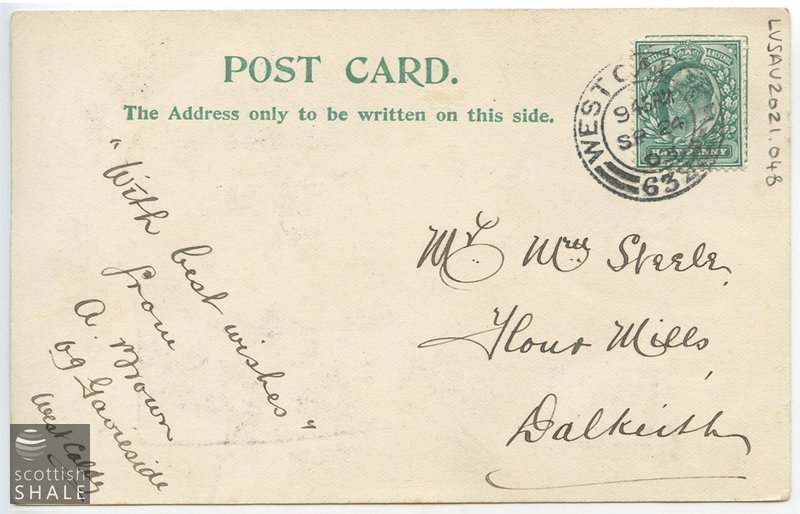 POST CARD.
The Address only to be written on this side.
WEST C
945PM
SP 24
03
632
HALFPENNY
LVSAV2021.048
"With best wishes"
from
A. Brown
69 Gavieside
West Calder
Mr Wm Steele,
Flour Mills,
Dalkeith
scottish
SHALE